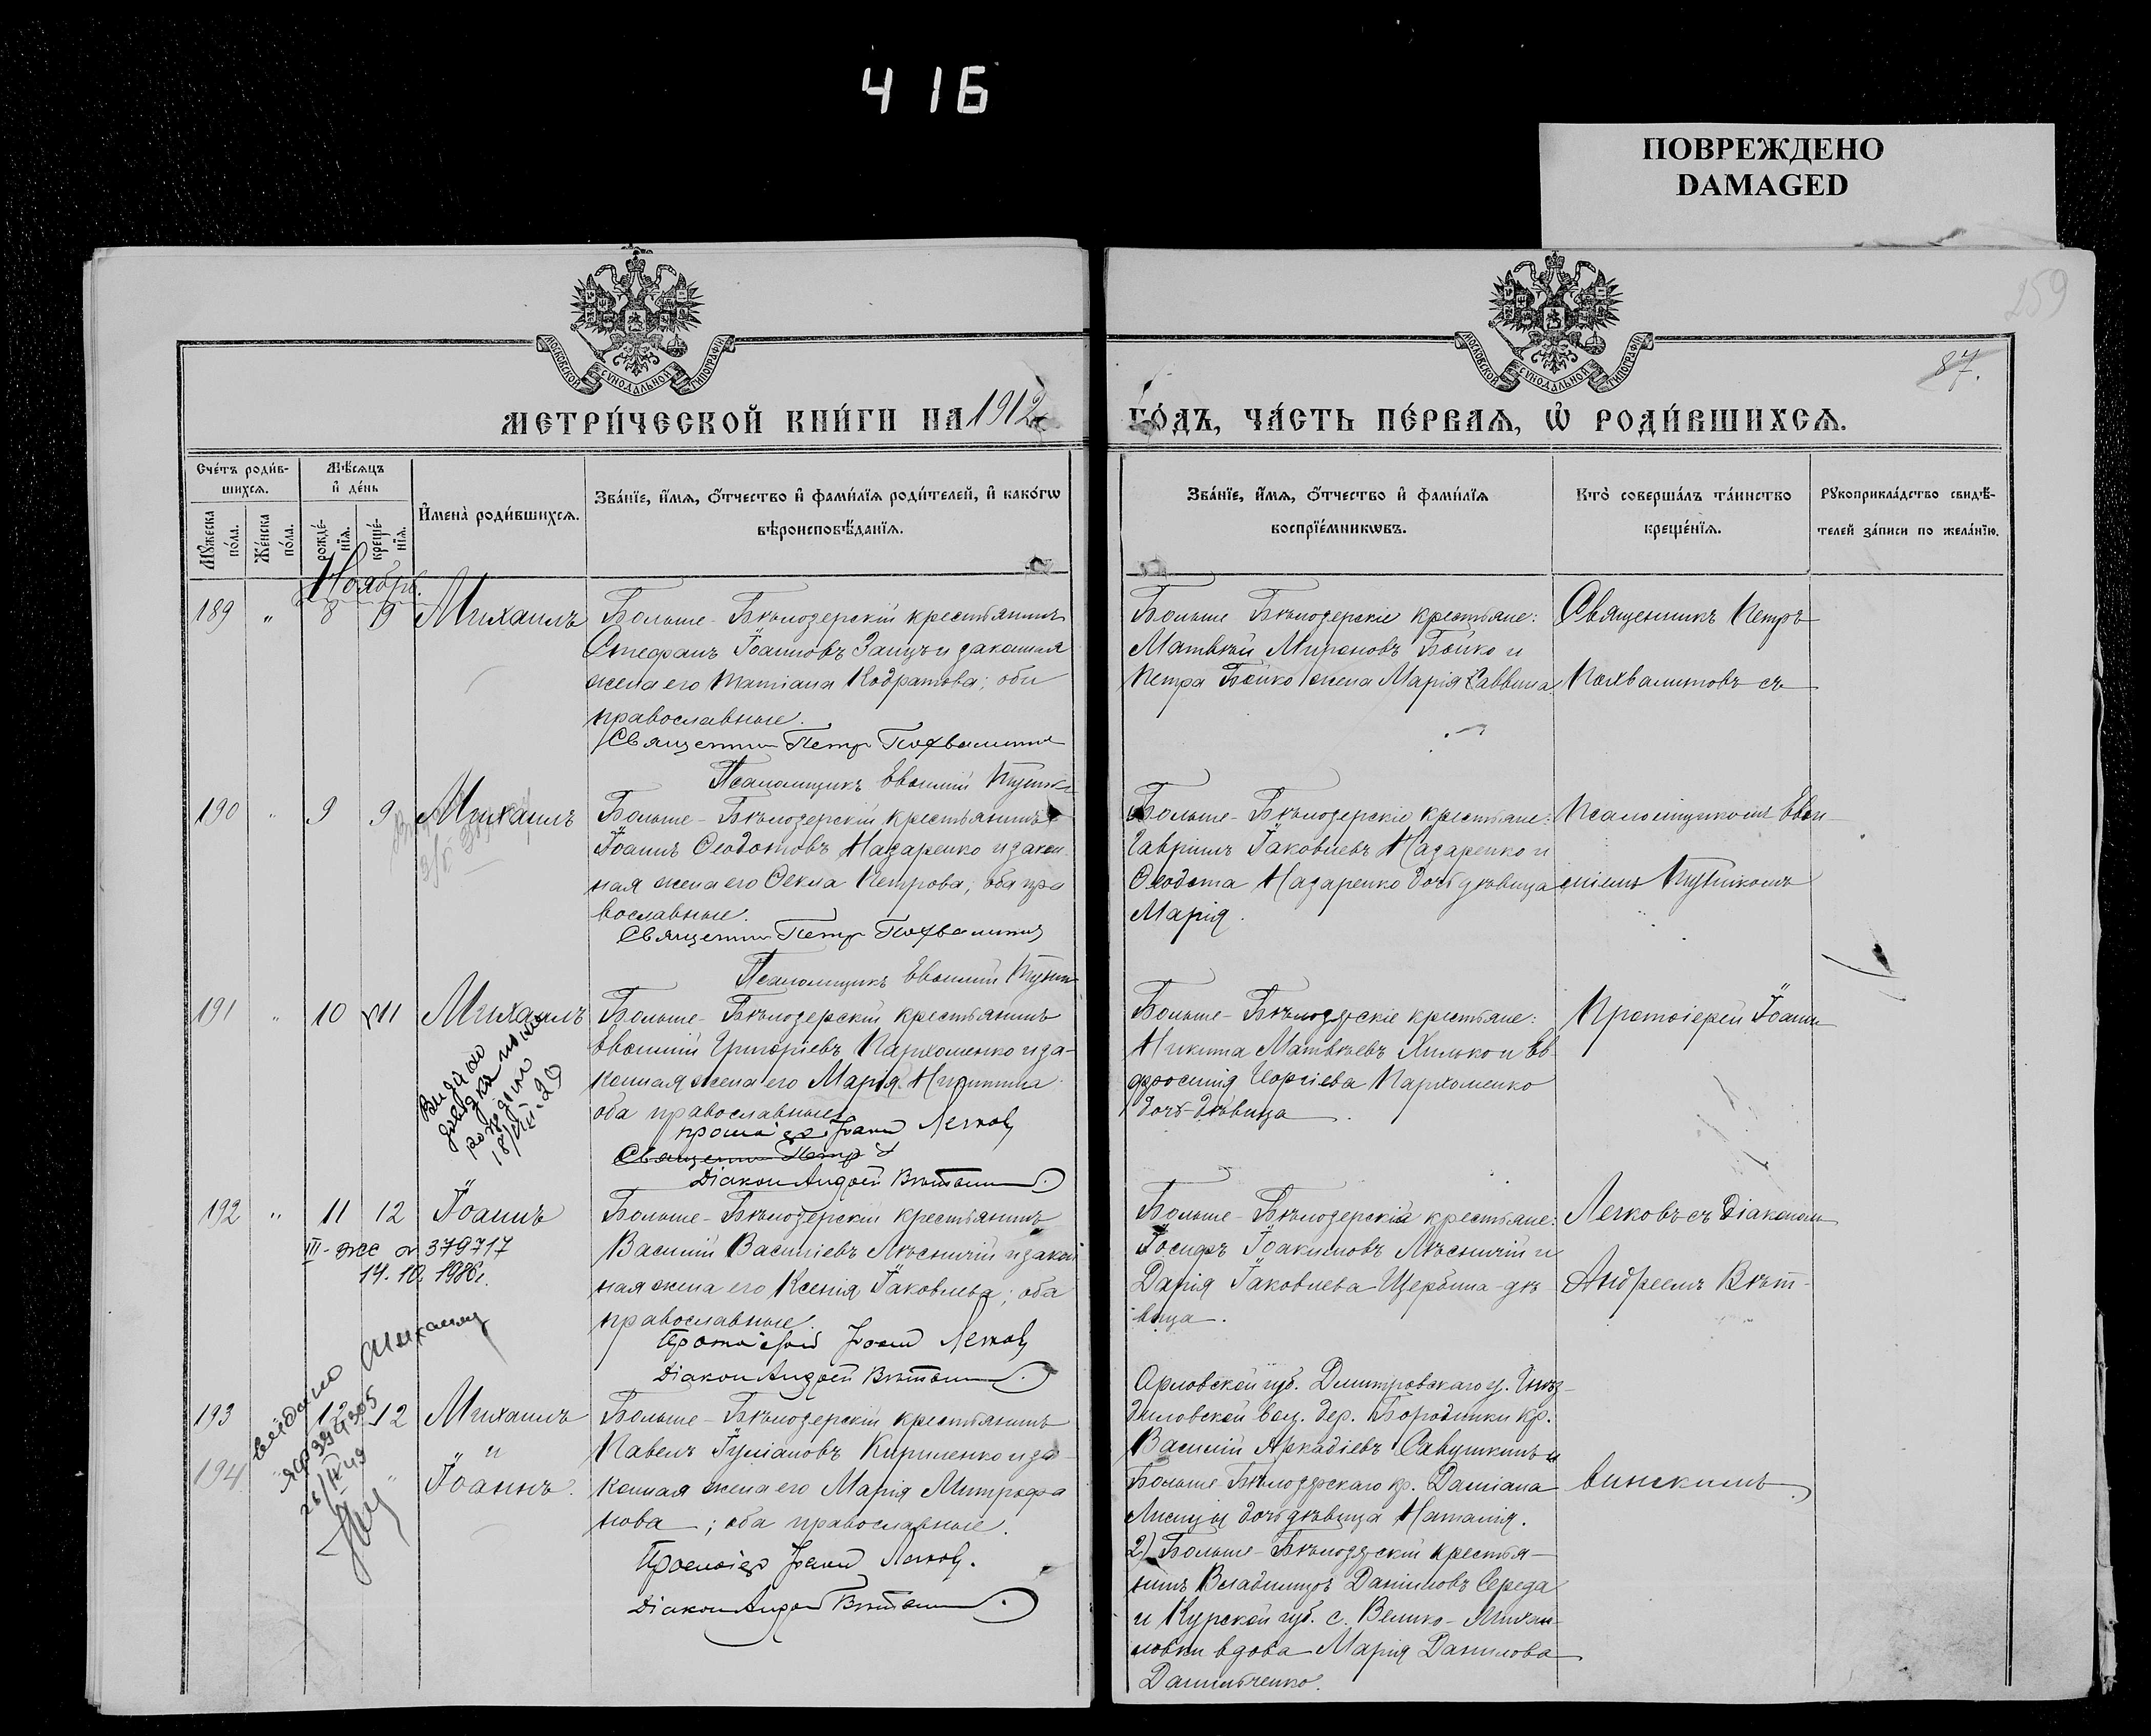 416
ПОВРЕЖДЕНО
DAMAGED
259
87.
МОСКОВСКОЙ СѴНОДАЛЬНОЙ ТИПОГРАФІИ
МОСКОВСКОЙ СѴНОДАЛЬНОЙ ТИПОГРАФІИ
МЕТРИ́ЧЕСКОЙ КНИ́ГИ НА 1912
ГО́ДЪ, ЧА́СТЬ ПЕ́РВАѦ, Ѡ҆ РОДИ́ВШИХСѦ.
Сче́тъ роди́в-
шихсѧ.
Мѣ́сѧцъ
и҆ де́нь
Мꙋ́жеска
по́ла.
Же́нска
по́ла.
рожде́-
нїѧ.
креще́-
нїѧ.
И҆мена̀ роди́вшихсѧ.
Зва́нїе, и҆́мѧ, ѻ҆́тчество и҆ фами́лїѧ роди́телей, и҆ како́гѡ
вѣроисповѣ́данїѧ.
Зва́нїе, и҆́мѧ, ѻ҆́тчество и҆ фами́лїѧ
воспрїе́мникѡвъ.
Кто̀ соверша́лъ та́инство
креще́нїѧ.
Рꙋкоприкла́дство свидѣ́-
телей за́писи по жела́нїю.
Ноябрь.
189 " 8 9 Михаилъ
Больше-Бѣлозерскій крестьянинъ
Стефанъ Іоанновъ Заицъ и законная
жена его Татіана Кодратова; оба
православные.
Священник Петр Похвалитов
Псаломщикъ Евѳимій
Больше Бѣлозерскіе крестьяне:
Матвѣй Мироновъ Бойко и
Петра Бойко жена Марія Саввина.
Священникъ Петръ
Похвалитовъ съ
190 " 9 9 Михаилъ
Больше-Бѣлозерскій крестьянинъ
Іоаннъ Ѳеодотовъ Назаренко и закон-
ная жена его Ѳекла Петрова; оба пра
вославные.
Священник Петр Похвалитов
Псаломщикъ Евѳимій
Больше-Бѣлозерскіе крестьяне:
Гавріилъ Іаковлевъ Назаренко и
Ѳеодота Назаренко дочь дѣвица
Марія.
Псаломщикомъ Евѳи
міемъ
191 " 10 11 Михаилъ
Видано
18/VIII-29
Больше-Бѣлозерскій крестьянинъ
Евѳимій Григоріевъ Пархоменко и за-
конная жена его Марія Никитина
оба православные.
Протоіер Іоанн Легков
Священник Петр
Діакон Андрей
Больше-Бѣлозерскіе крестьяне:
Никита Матвѣевъ Хилько и Ев-
фросинія Георгіева Пархоменко
дочь-дѣвица.
Протоіерей Іоанн
192 " 11 12 Іоаннъ
III-ЖС № 379717
14.10.1986г.
Больше-Бѣлозерскій крестьянинъ
Василій Василіевъ Лѣсничій и закон
ная жена его Ксенія Іаковлева; оба
православные.
Протоіерей Іоанн Легков
Діакон Андрей
Больше-Бѣлозерскіе крестьяне:
Іосифъ Іоакимовъ Лѣсничій и
Дарія Іаковлева Щербина-дѣ-
вица.
Легковъ съ Діаконом
Андреемъ Вѣт-
193 12 12 Михаилъ
" и
194 " Іоаннъ.
видано Михаилу
Больше-Бѣлозерскій крестьянинъ
Павелъ Іуліановъ Кириленко и за-
конная жена его Марія Митрофа
нова; оба православные.
Протоіер Іоанн Легков.
Діакон Андрей
Орловской губ. Дмитровскаго у.
вол. дер. Бородинки кр.
Василій Аркадіевъ Савушкинъ и
Больше-Бѣлозерскаго кр. Даміана
Лисицы дочь дѣвица Наталія.
2) Больше-Бѣлозерскій крестья-
нинъ Владиміръ Даніиловъ Середа
и Курской губ. с. Велико-Михай-
ловки вдова Марія Данилова
Данильченко.
винскимъ